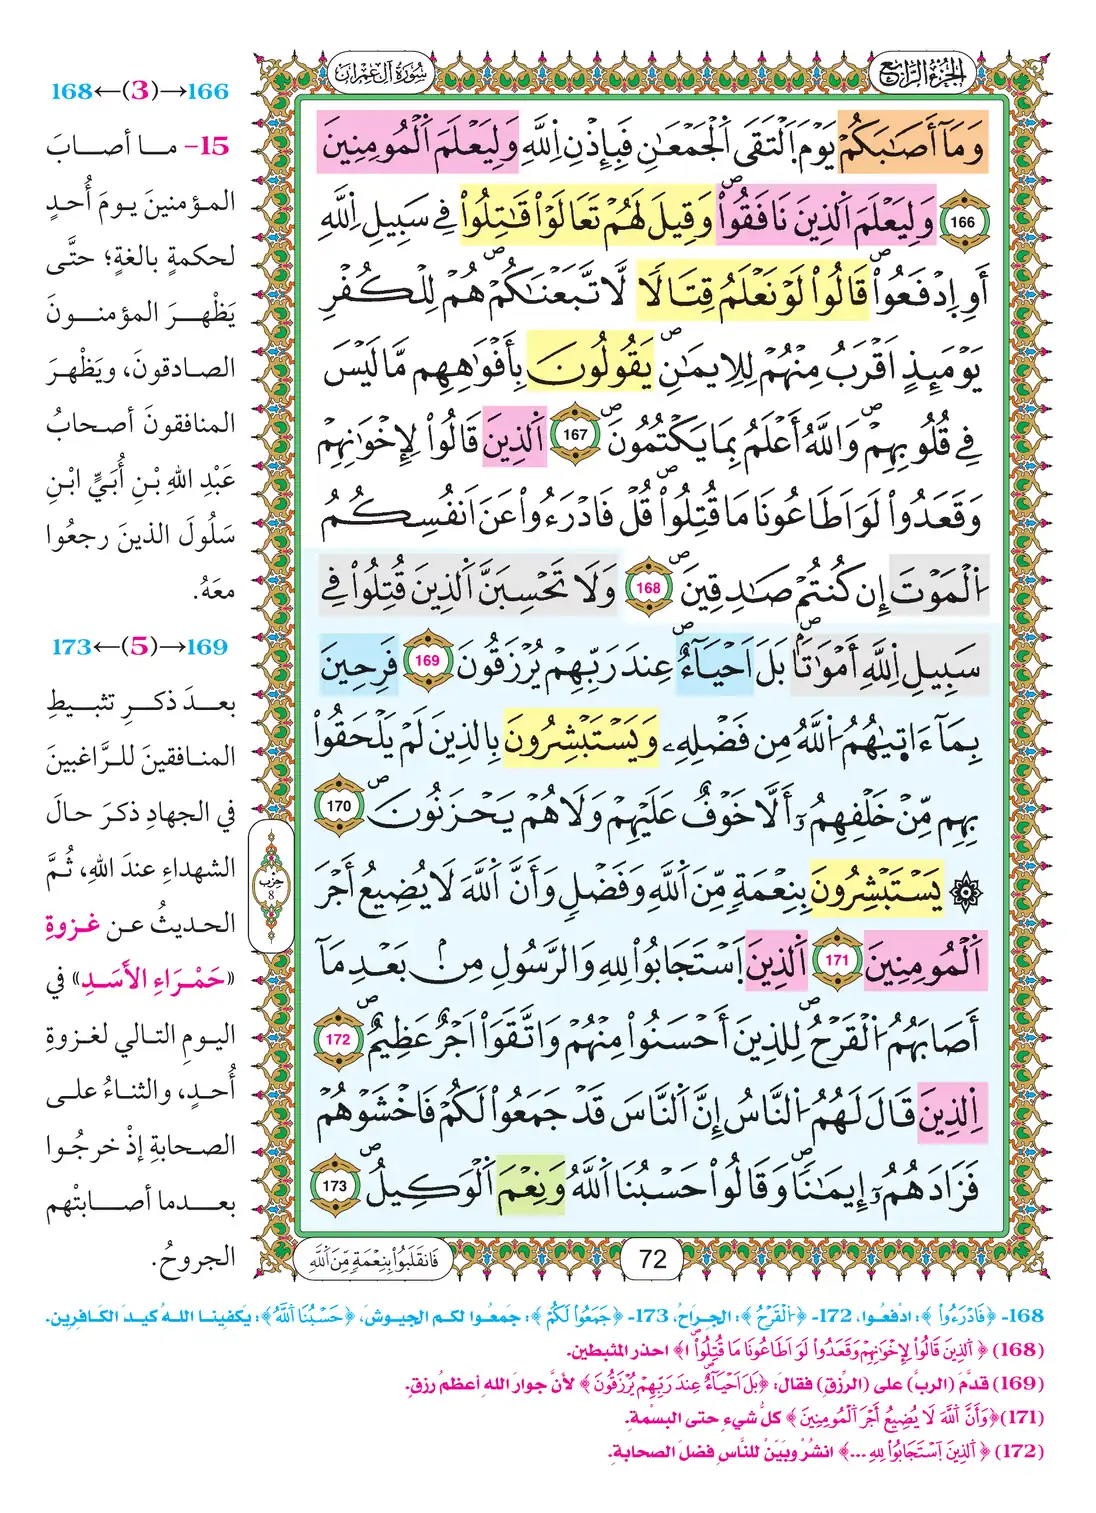 الجزء الرابع
سورة آل عمران
وَمَا أَصَٰبَكُمْ يَوْمَ اَ۬لْتَقَى اَ۬لْجَمْعَٰنِ فَبِإِذْنِ اِ۬للَّهِ وَلِيَعْلَمَ اَ۬لْمُومِنِينَ
166 وَلِيَعْلَمَ اَ۬لذِينَ نَافَقُواْۖ وَقِيلَ لَهُمْ تَعَالَوْاْ قَٰتِلُواْ فِے سَبِيلِ اِ۬للَّهِ
أَوِ اِ۪دْفَعُواْۖ قَالُواْ لَوْ نَعْلَمُ قِتَالاٗ لَّاتَّبَعْنَٰكُمْۖ هُمْ لِلْكُفْرِ
يَوْمَئِذٍ اَقْرَبُ مِنْهُمْ لِلِايمَٰنِۖ يَقُولُونَ بِأَفْوَٰهِهِم مَّا لَيْسَ
فِے قُلُوبِهِمْۖ وَاللَّهُ أَعْلَمُ بِمَا يَكْتُمُونَۖ 167 اَ۬لذِينَ قَالُواْ لِإِخْوَٰنِهِمْ
وَقَعَدُواْ لَوَ اَطَاعُونَا مَا قُتِلُواْۖ قُلْ فَادْرَءُواْ عَنَ اَنفُسِكُمُ
اُ۬لْمَوْتَ إِن كُنتُمْ صَٰدِقِينَۖ 168 وَلَا تَحْسِبَنَّ اَ۬لذِينَ قُتِلُواْ فِے
سَبِيلِ اِ۬للَّهِ أَمْوَٰتاَۢۖ بَلَ اَحْيَآءٌ عِندَ رَبِّهِمْ يُرْزَقُونَۖ 169 فَرِحِينَ
بِمَآ ءَات۪يٰهُمُ اُ۬للَّهُ مِن فَضْلِهِۦ وَيَسْتَبْشِرُونَ بِالذِينَ لَمْ يَلْحَقُواْ
بِهِم مِّنْ خَلْفِهِمُۥٓ أَلَّا خَوْفٌ عَلَيْهِمْ وَلَا هُمْ يَحْزَنُونَۖ 170
۞ يَسْتَبْشِرُونَ بِنِعْمَةٖ مِّنَ اَ۬للَّهِ وَفَضْلٖ وَأَنَّ اَ۬للَّهَ لَا يُضِيعُ أَجْرَ
اَ۬لْمُومِنِينَ 171 اَ۬لذِينَ اَ۪سْتَجَابُواْ لِلهِ وَالرَّسُولِ مِنۢ بَعْدِ مَآ
أَصَابَهُمُ اُ۬لْقَرْحُۖ لِلذِينَ أَحْسَنُواْ مِنْهُمْ وَاتَّقَوَاْ اَجْرٌ عَظِيمٌۖ 172
اِ۬لذِينَ قَالَ لَهُمُ اُ۬لنَّاسُ إِنَّ اَ۬لنَّاسَ قَدْ جَمَعُواْ لَكُمْ فَاخْشَوْهُمْ
فَزَادَهُمُۥٓ إِيمَٰناٗۖ وَقَالُواْ حَسْبُنَا اَ۬للَّهُ وَنِعْمَ اَ۬لْوَكِيلُۖ 173
72
فَانقَلَبُواْ بِنِعْمَةٖ مِّنَ اَ۬للَّهِ
حزب
8
166→(3)←168
15- مـا أصـابَ
المـؤمنينَ يـومَ أُحـدٍ
لحكمةٍ بالغةٍ؛ حتَّى
يَظْهـرَ المؤمنـونَ
الصـادقونَ، ويَظْهـرَ
المنافقونَ أصحابُ
عَبْدِ اللهِ بْنِ أُبَيٍّ ابْنِ
سَلُولَ الذينَ رجعُوا
معَهُ.
169→(5)←173
بعـدَ ذكـرِ تثبـيطِ
المنـافقينَ للـرَّاغبينَ
في الجهادِ ذكـرَ حـالَ
الشهداءِ عندَ اللهِ، ثُـمَّ
الحـديثُ عـن غـزوةِ
«حَمْـرَاءِ الأَسَـدِ» في
اليـومِ التـالي لغـزوةِ
أُحـدٍ، والثنـاءُ علـى
الصـحابةِ إذْ خرجُـوا
بعـدما أصـابتْهم
الجروحُ.
168- ﴿فَادْرَءُواْ﴾: ادْفعُـوا، 172- ﴿اُ۬لْقَرْحُ﴾: الجِـراحُ، 173- ﴿جَمَعُواْ لَكُمْ﴾: جمعُـوا لكـم الجيـوشَ، ﴿حَسْبُنَا اَ۬للَّهُ﴾: يكفينـا اللـهُ كيـدَ الكـافرِين.
(168) ﴿اَ۬لذِينَ قَالُواْ لِإِخْوَٰنِهِمْ وَقَعَدُواْ لَوَ اَطَاعُونَا مَا قُتِلُواْۖ﴾ احذر المثبطين.
(169) قدَّمَ (الربَّ) على (الرِّزقِ) فقالَ: ﴿بَلَ اَحْيَآءٌ عِندَ رَبِّهِمْ يُرْزَقُونَ﴾ لأنَّ جوارَ اللهِ أعظمُ رزقٍ.
(171) ﴿وَأَنَّ اَ۬للَّهَ لَا يُضِيعُ أَجْرَ اَ۬لْمُومِنِينَ﴾ كلُّ شيءٍ حتى البسْمة.
(172) ﴿اَ۬لذِينَ اَ۪سْتَجَابُواْ لِلهِ ...﴾ انشُرْ وبَيّنْ للنَّاسِ فضلَ الصحابة.